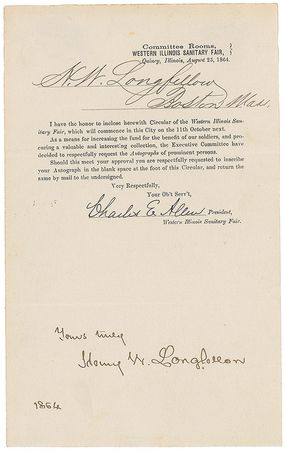 Committee Rooms,
WESTERN ILLINOIS SANITARY FAIR,
Quincy, Illinois, August 25, 1864.
H. W. Longfellow
Boston Mas.
I have the honor to inclose herewith Circular of the Western Illinois San-
itary Fair, which will commence in this City on the 11th October next.
As a means for increasing the fund for the benefit of our soldiers, and pro-
curing a valuable and interesting collection, the Executive Committee have
decided to respectfully request the Autographs of prominent persons.
Should this meet your approval you are respectfully requested to inscribe
your Autograph in the blank space at the foot of this Circular, and return the
same by mail to the undersigned.
Very Respectfully,
Your Ob't Serv't,
Charles E. Allen President,
Western Illinois Sanitary Fair.
Yours truly
Henry W. Longfellow
1864